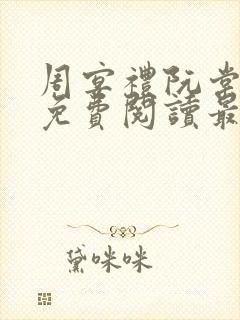 周宴禮阮棠
免費閱讀最
黛咪咪